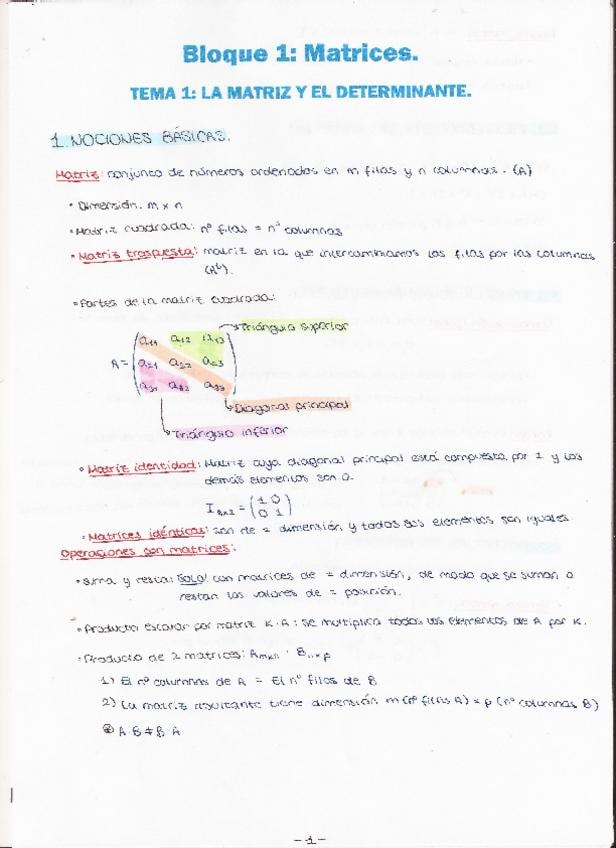 Bloque 1: Matrices.
TEMA 1: LA MATRIZ Y EL DETERMINANTE.
1. NOCIONES BÁSICAS.
Matriz: conjunto de números ordenados en m filas y n columnas. (A)
• Dimensión. m x n
• Matriz cuadrada: nº filas = nº columnas
• Matriz traspuesta: matriz en la que intercambiamos las filas por las columnas
(Aᵗ).
• Partes de la matriz cuadrada:
Triángulo superior
a11 a12 a13
A = a21 a22 a23
a31 a32 a33
Diagonal principal
Triángulo inferior
• Matriz identidad: Matriz cuya diagonal principal está compuesta por 1 y los
demás elementos son 0.
I2x2 = (1 0
0 1)
• Matrices idénticas: son de = dimensión y todos sus elementos son iguales
Operaciones con matrices:
• Suma y resta: ¡SOLO! con matrices de = dimensión, de modo que se suman o
restan los valores de = posición.
• Producto escalar por matriz K·A: se multiplica todos los elementos de A por K.
• Producto de 2 matrices: Amxn · Bnxp
1) El nº columnas de A = El nº filas de B
2) La matriz resultante tiene dimensión m (nº filas A) x p (nº columnas B)
A·B ≠ B·A
-1-